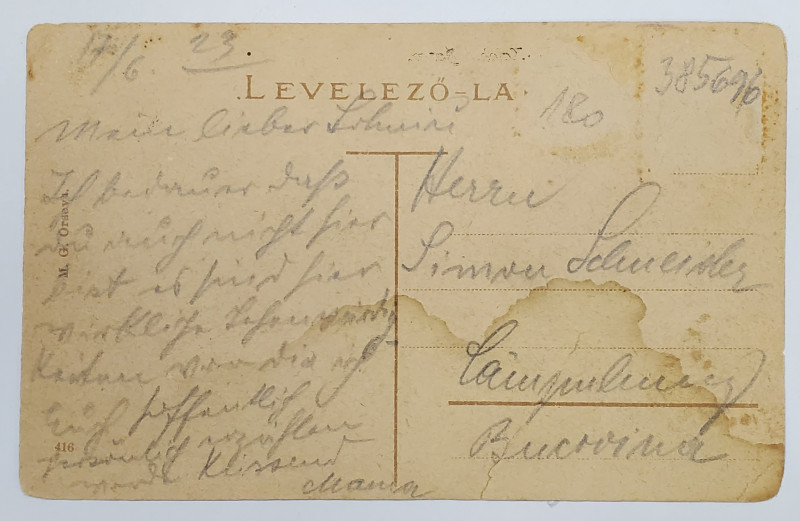 17/6 23
LEVELEZŐ-LA
180
385696
M. G. Orsova
416
Mein lieber
Ich bedauer daß
du auch nicht hier
bist es sind hier
wirkliche Sehenswürdig
keiten von die ich
Euch hoffentlich
persönlich erzählen
werde Küssend
Mama
Herrn
Simon Schneider
Câmpulung
Bucovina